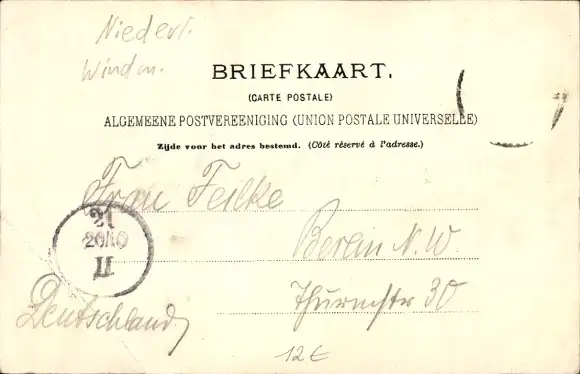 Niederl.
Windm.
BRIEFKAART.
(CARTE POSTALE)
ALGEMEENE POSTVEREENIGING (UNION POSTALE UNIVERSELLE)
Zijde voor het adres bestemd. (Côté réservé à l'adresse.)
Frau Feilke
Berlin N.W.
Thurmstr 30
Deutschland
12€